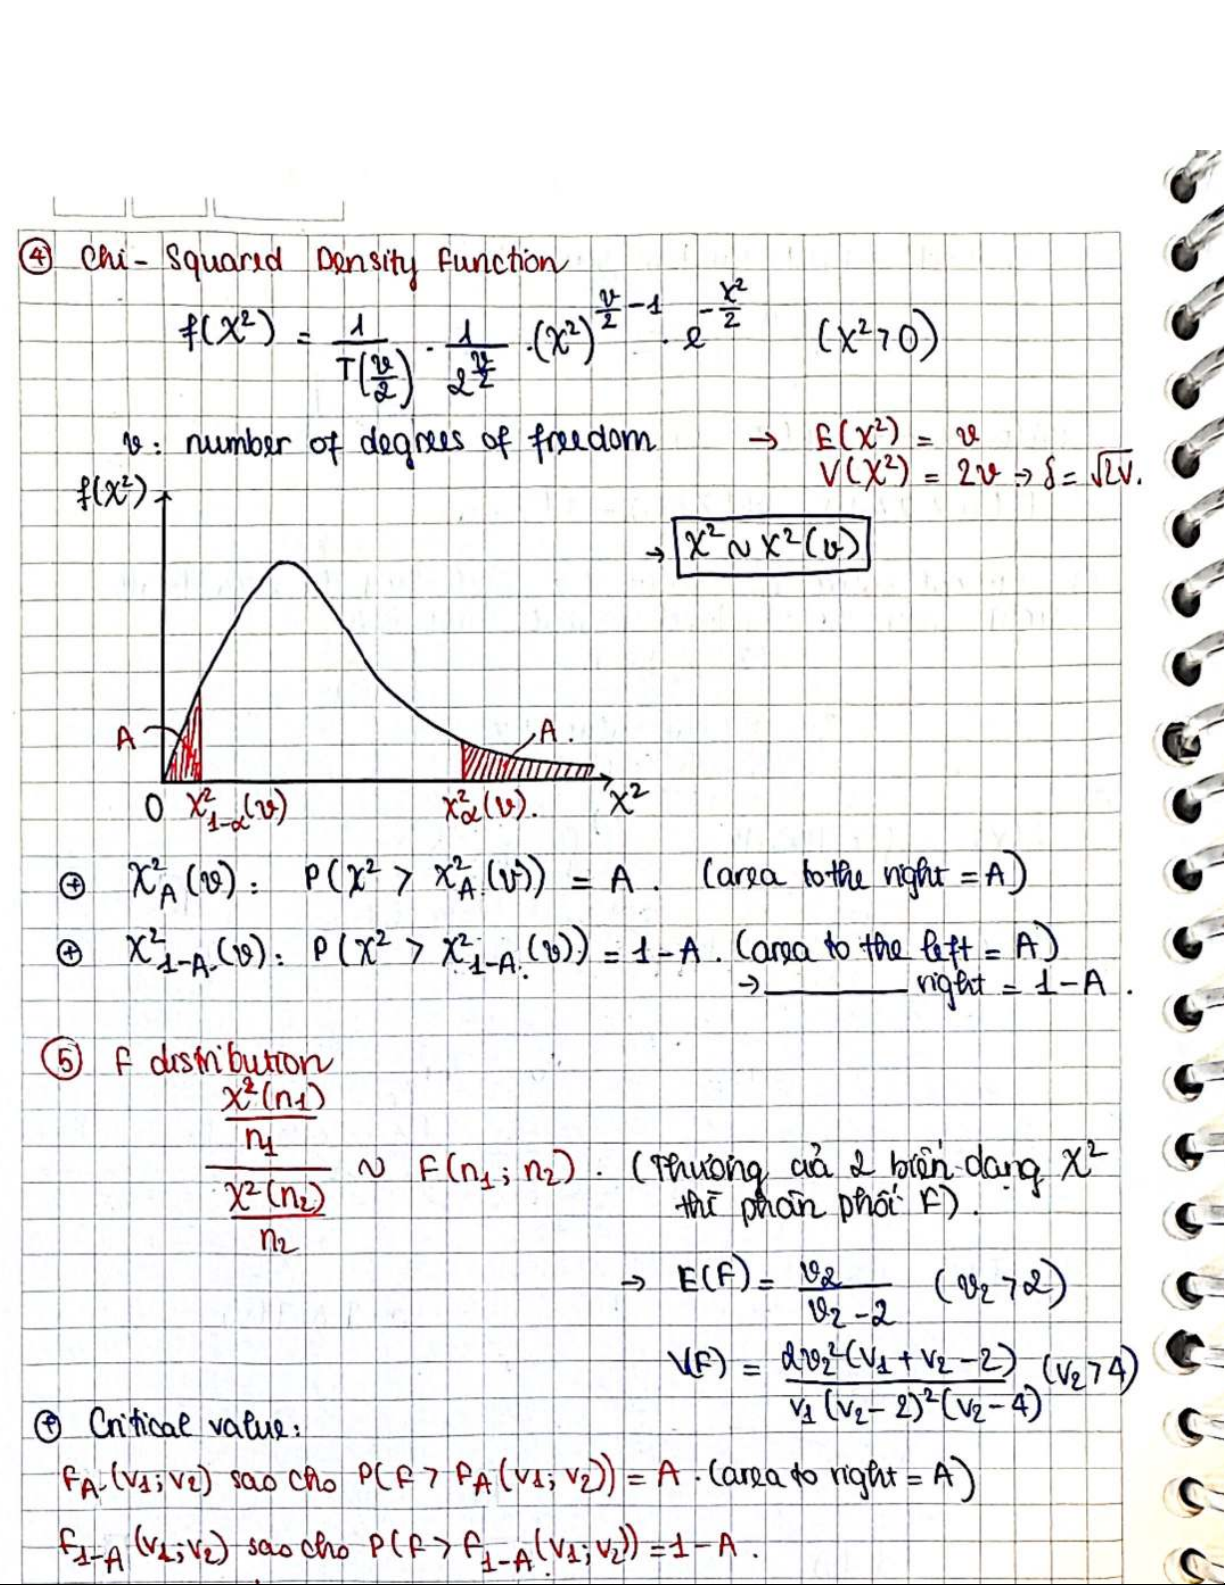 ④ Chi-Squared Density Function
f(χ²) = 1/T(v/2) · 1/2^(v/2) · (χ²)^(v/2 - 1) · e^(-χ²/2) (χ²>0)
v: number of degrees of freedom → E(χ²) = v
V(χ²) = 2v → δ = √2v.
f(χ²)
→ χ² ~ χ²(v)
A
A.
0 χ²_{1-α}(v) χ²_α(v). χ²
⊕ χ²_A(v): P(χ² > χ²_A(v)) = A. (area to the right = A)
⊕ χ²_{1-A}(v): P(χ² > χ²_{1-A}(v)) = 1-A. (area to the left = A)
→ ______ right = 1-A.
⑤ F distribution
(χ²(n₁)/n₁) / (χ²(n₂)/n₂) ~ F(n₁; n₂). (Thương của 2 biến dạng χ²
thì phân phối F).
→ E(F) = v₂/(v₂-2) (v₂>2)
V(F) = 2v₂²(v₁+v₂-2)/(v₁(v₂-2)²(v₂-4)) (v₂>4)
⊕ Critical value:
F_A(v₁; v₂) sao cho P(F > F_A(v₁; v₂)) = A. (area to right = A)
F_{1-A}(v₁; v₂) sao cho P(F > F_{1-A}(v₁; v₂)) = 1-A.